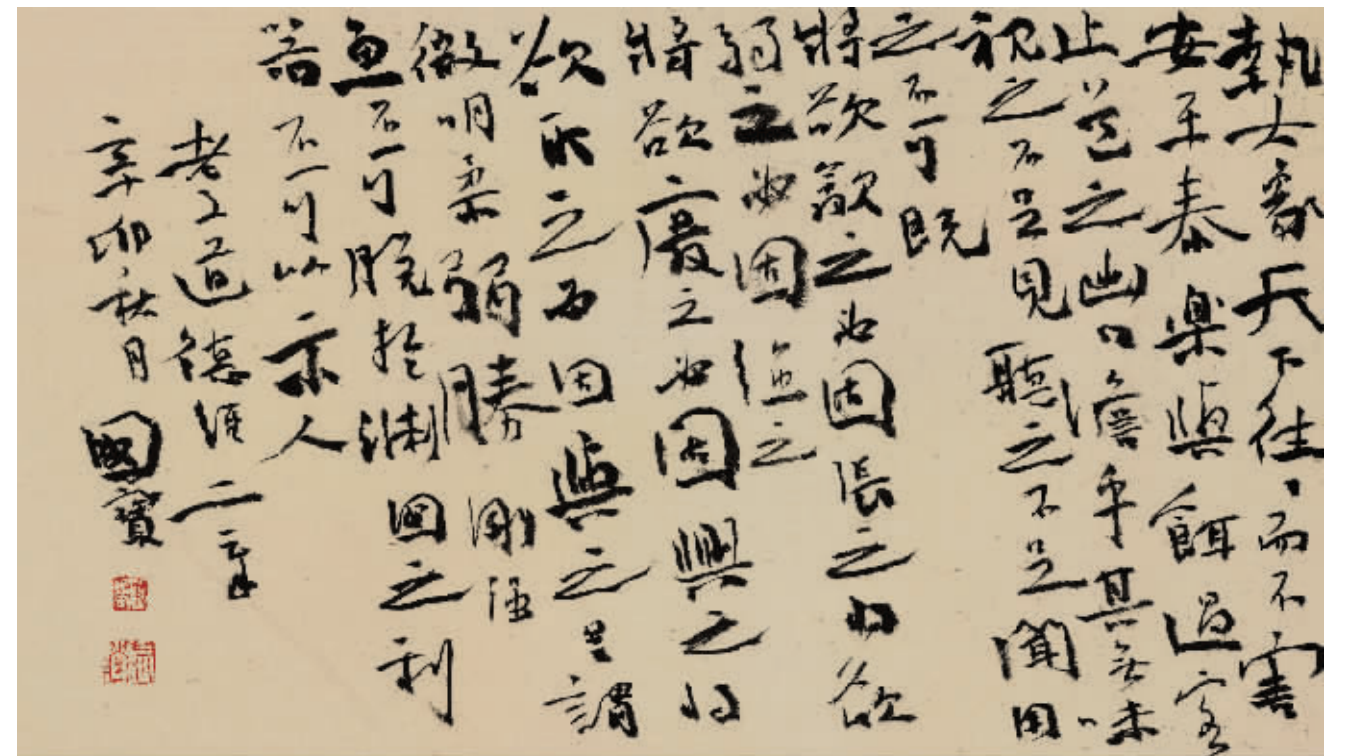 執大象天下往々而不害
安平泰樂與餌過客
止道之出口澹乎其無味
視之不足見聽之不足聞用
之不可既
將欲歙之必固張之將欲
弱之必固強之
將欲廢之必固興之將
欲取之必固與之是謂
微明柔弱勝剛強
魚不可脫於淵國之利
器不可以示人
老子道德經二章
辛卯秋月國寶